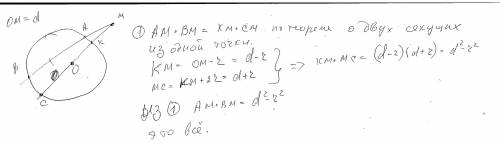 OM = d
M
A
K
O
B
C
① AM · BM = KM · CM по теореме о двух секущих
из одной точки.
KM = OM - r = d - r
MC = KM + 2r = d + r
⇒ KM · MC = (d - r)(d + r) = d² - r²
Из ① AM · BM = d² - r²
это всё.